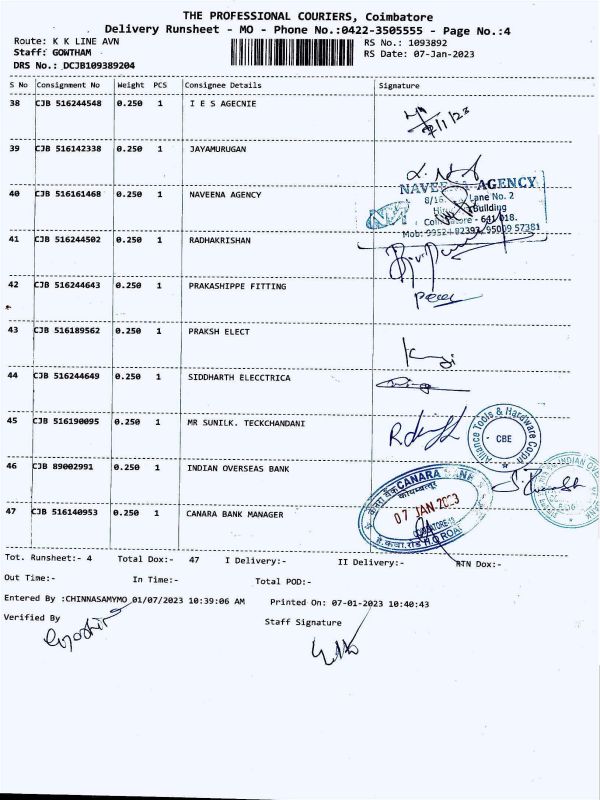 THE PROFESSIONAL COURIERS, Coimbatore
Delivery Runsheet - MO - Phone No.:0422-3505555 - Page No.:4
Route: K K LINE AVN
RS No.: 1093892
Staff: GOWTHAM
RS Date: 07-Jan-2023
DRS No.: DCJB109389204
S No Consignment No Weight PCS Consignee Details Signature
38 CJB 516244548 0.250 1 I E S AGECNIE
39 CJB 516142338 0.250 1 JAYAMURUGAN
40 CJB 516161468 0.250 1 NAVEENA AGENCY
NAVEENA AGENCY
Lane No. 2
Building
641 018.
41 CJB 516244502 0.250 1 RADHAKRISHAN
42 CJB 516244643 0.250 1 PRAKASHIPPE FITTING
43 CJB 516189562 0.250 1 PRAKSH ELECT
44 CJB 516244649 0.250 1 SIDDHARTH ELECCTRICA
45 CJB 516190095 0.250 1 MR SUNILK. TECKCHANDANI
Alliance Tools & Hardware Corpn
CBE
46 CJB 89002991 0.250 1 INDIAN OVERSEAS BANK
47 CJB 516140953 0.250 1 CANARA BANK MANAGER
CANARA BANK
07 JAN 2023
Tot. Runsheet:- 4 Total Dox:- 47 I Delivery:- II Delivery:- RTN Dox:-
Out Time:- In Time:- Total POD:-
Entered By :CHINNASAMYMO 01/07/2023 10:39:06 AM Printed On: 07-01-2023 10:40:43
Verified By
Staff Signature